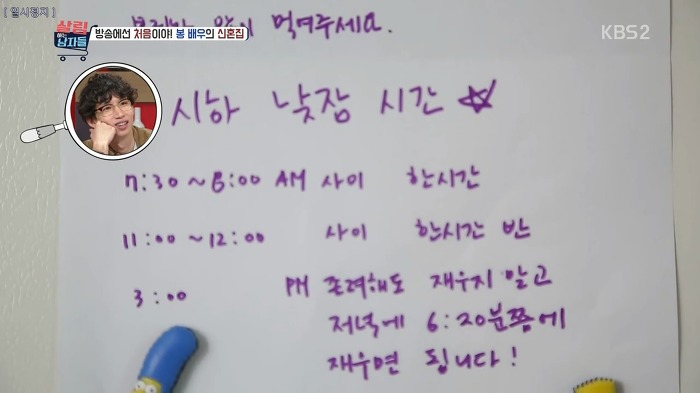 [ 일시정지 ]
살림 하는 남자들
방송에선 처음이야! 봉 배우의 신혼집
KBS2
먹여주세요.
시하 낮잠 시간 ☆
7:30 ~ 8:00 AM 사이 한시간
11:00 ~ 12:00 사이 한시간 반
3:00 PM 졸려해도 재우지 말고
저녁에 6:20분쯤에
재우면 됩니다!